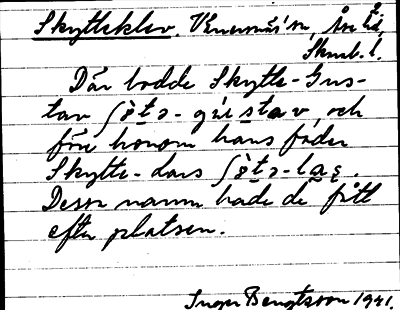 Skytteklev, Venersnäs's n, Åse hd,
Skarab. l.
Där bodde Skytte-Gus-
tav ʃøtə-gústav, och
före honom hans fader
Skytte-Lars ʃøtə-laʂ.
Dessa namn hade de fått
efter platsen.
Inger Bengtsson 1941.